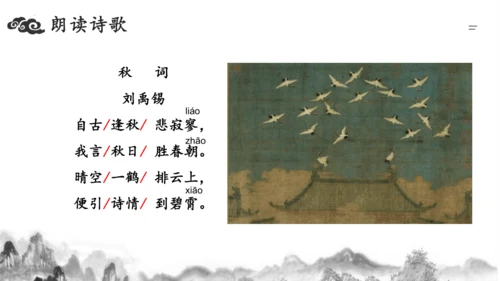 朗读诗歌
秋 词
刘禹锡
liáo
自古/逢秋/ 悲寂寥，
zhāo
我言/秋日/ 胜春朝。
晴空/一鹤/ 排云上，
xiāo
便引/诗情/ 到碧霄。